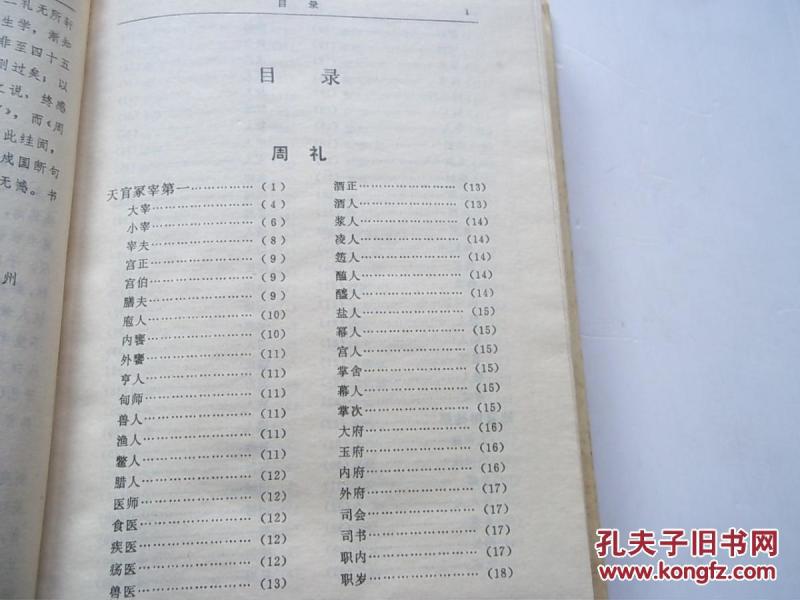 二礼无所析
生学，渐知
非至四十五
则过矣；以
之说，终感
，而《周
此绪闻，
成国断句
无憾。书
州
目录
1
目录
周礼
天官冢宰第一……………（1）
大宰……………………（4）
小宰……………………（6）
宰夫……………………（8）
宫正……………………（9）
宫伯……………………（9）
膳夫……………………（9）
庖人……………………（10）
内饔……………………（10）
外饔……………………（11）
亨人……………………（11）
甸师……………………（11）
兽人……………………（11）
渔人……………………（11）
鳖人……………………（11）
腊人……………………（12）
医师……………………（12）
食医……………………（12）
疾医……………………（12）
疡医……………………（12）
兽医……………………（13）
酒正……………………（13）
酒人……………………（13）
浆人……………………（14）
凌人……………………（14）
笾人……………………（14）
醢人……………………（14）
醯人……………………（14）
盐人……………………（15）
幂人……………………（15）
宫人……………………（15）
掌舍……………………（15）
幕人……………………（15）
掌次……………………（15）
大府……………………（16）
玉府……………………（16）
内府……………………（16）
外府……………………（17）
司会……………………（17）
司书……………………（17）
职内……………………（17）
职岁……………………（18）
孔夫子旧书网
www.kongfz.com